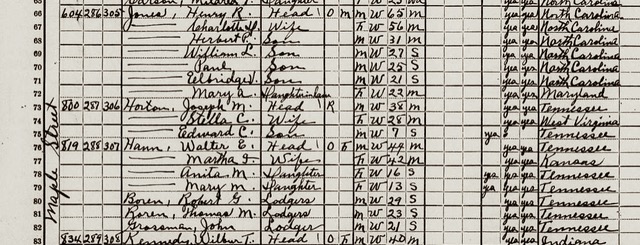 65 Carson, Mildred F W North Carolina
66 604 286 305 Jones, Henry R. Head 1 O M M W 65 M yes yes North Carolina
67 —— Charlotte Wife F W 56 M yes yes North Carolina
68 —— Herbert Son M W 31 M yes yes North Carolina
69 —— William L. Son M W 27 S yes yes North Carolina
70 —— Paul Son M W 25 S yes yes North Carolina
71 —— Elbridge Son M W 21 S yes yes North Carolina
72 —— Mary Daughter in law F W 22 M yes yes Maryland
73 800 287 306 Horton, Joseph M. Head R M W 38 M yes yes Tennessee
74 —— Stella C. Wife F W 28 M yes yes West Virginia
75 —— Edward C. Son M W 7 S yes Tennessee
76 819 288 307 Hann, Walter E. Head O F M W 44 M yes yes Tennessee
77 —— Martha Wife F W 42 M yes yes Kansas
78 —— Anita M. Daughter F W 16 S yes yes yes Tennessee
79 —— Mary M. Daughter F W 13 S yes yes yes Tennessee
80 Boren, Robert G. Lodgers M W 29 S yes yes Tennessee
81 Boren, Thomas M. Lodgers M W 23 S yes yes Tennessee
82 Grossman, John Lodger M W 21 S yes yes Tennessee
83 834 289 308 Kennedy, Wilbur T. Head O F M W 40 M yes yes Indiana
Maple Street